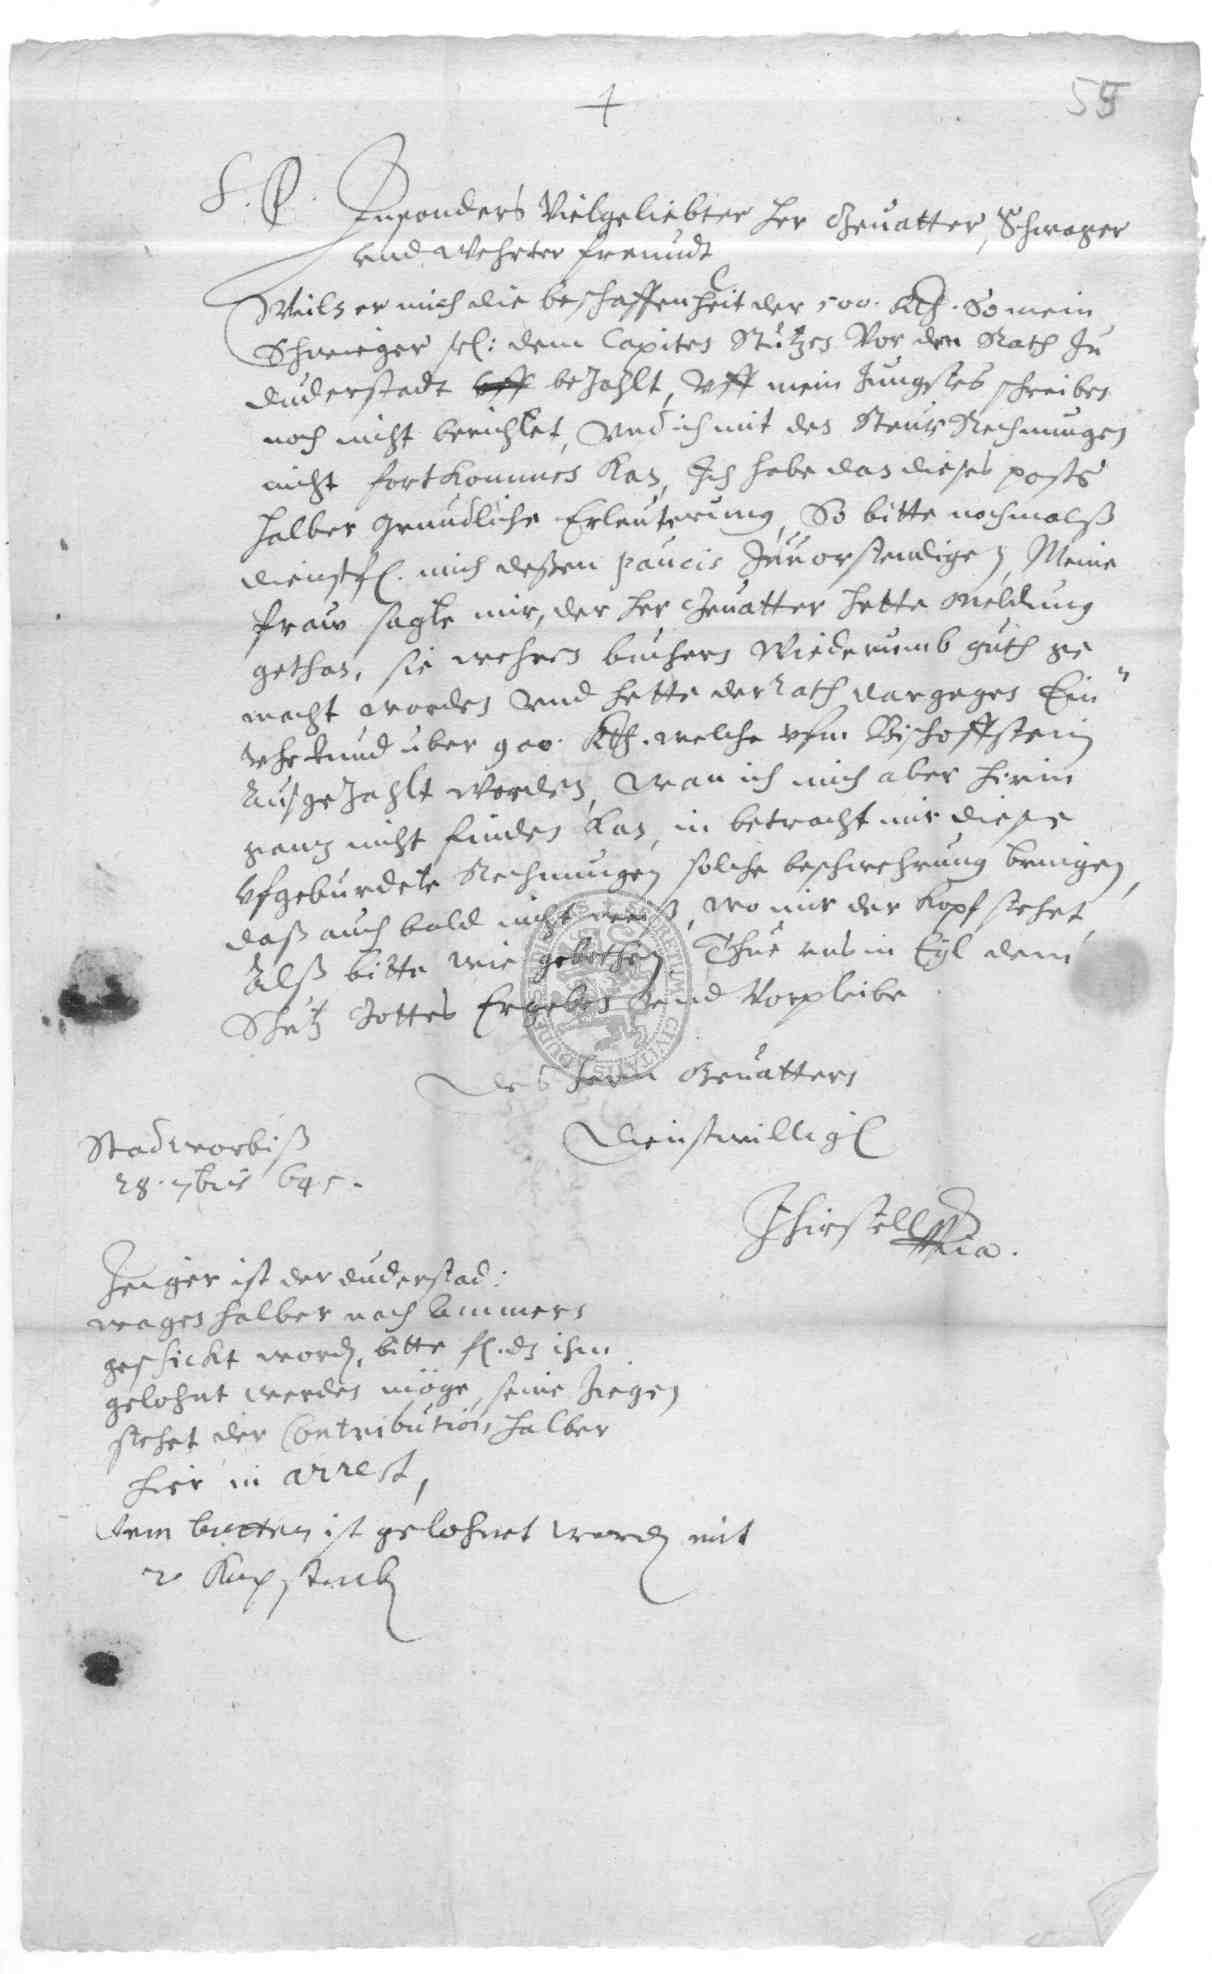 55
S. P. Insonders Vielgeliebter Her Gevatter, Schwager
und Wehrter freundt
Weils er mich die beschaffenheit der 500. Rth. So mein
Schwieger sel: dem Capiten Stutzen Vor den Rath Zu
duderstadt bezahlt, Vff mein Jungstes schreiben
noch nicht berichtet, Und ich mit den Steur Rechnungen
nicht fortkommen kan, Ich habe dan dieses posts
halber grundliche Erleuterung, So bitte nochmalß
dienstfl. mich deßen paucis Zuvorstendigen, Meine
fraw sagte mir, der Her Gevatter hette Meldung
gethan, sie wehren buchern Wiederumb guth ge
macht worden und hette der Rath dargegen Ein
Vhrkund uber 900. Rth. welche vfm Bischoffstein
Ausgezahlt worden, wan ich mich aber hirin
gantz nicht finden kan, in betracht mir diese
Vfgeburdete Rechnungen solche beschwehrung bringen,
daß auch bald nicht weiß, wo mir der Kopf stehet,
Alß bitte wie gebethen, Thue uns in Eyl dem
Schutz Gottes Ergeben und Vorpleibe
Des Hern Gevattern
Dienstwilligl
Stadworbiß
28. 7bris 645.
Zeiger ist der duderstad:
wagen halber nach Ammern
geschickt word, bitte fl. dz ihm
gelohnt werden möge, seine Ziegen
stehet der Contribution halber
hier in arrest,
dem botten ist gelohnet word mit
2 Kopstuck
SECRETUM CIVITATIS DUDE